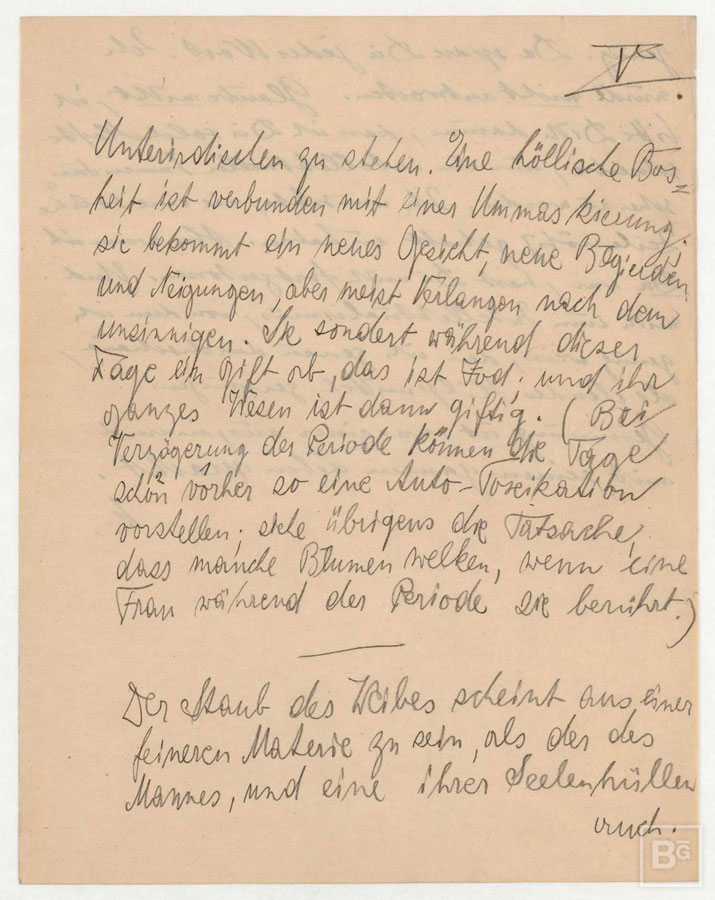 V.
Unterirdischen zu stehen. Eine höllische Bos=
heit ist verbunden mit einer Ummaskierung.
sie bekommt ein neues Gesicht, neue Begierden
und Neigungen, aber meist Verlangen nach dem
unsinnigen. Sie sondert während dieser
Tage ein Gift ab, das ist Jod. und ihr
ganzes Wesen ist dann giftig. (Bei
Verzögerung der Periode können die Tage
schon vorher so eine Auto-Toxikation
vorstellen; siehe übrigens die Tatsache,
dass manche Blumen welken, wenn eine
Frau während der Periode sie berührt.)
Der Staub des Weibes scheint aus einer
feineren Materie zu sein, als der des
Mannes, und eine ihrer Seelenhüllen
auch.
BG